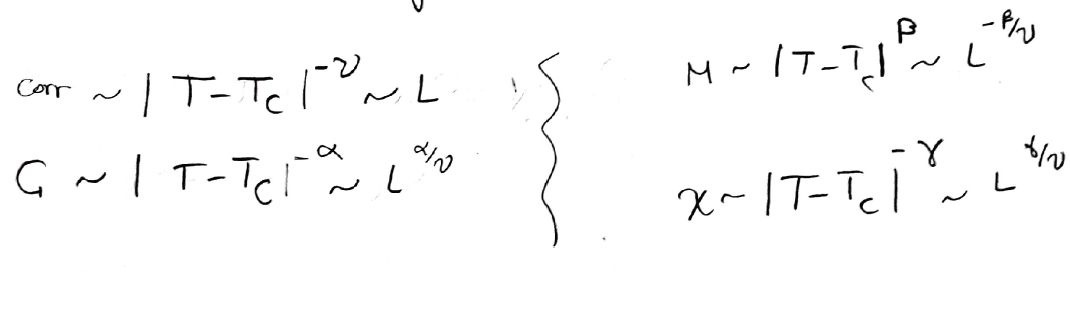 corr ~ |T-T_c|^{-ν} ~ L
G ~ |T-T_c|^{-α} ~ L^{α/ν}
M ~ |T-T_c|^β ~ L^{-β/ν}
χ ~ |T-T_c|^{-γ} ~ L^{γ/ν}